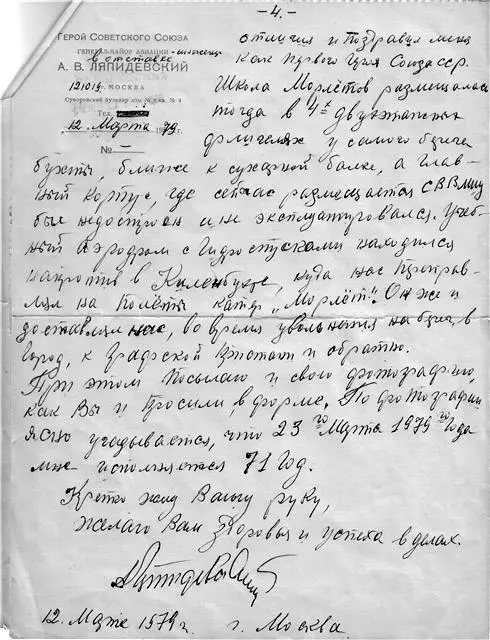 -4.-
Герой Советского Союза
генерал-майор авиации - инженер
в отставке
А. В. ЛЯПИДЕВСКИЙ
121019, МОСКВА
Суворовский бульвар дом № кв. № 4
Тел.
12. Марта 1979г.
№ —
отличия и поздравил меня
как первого Героя Союза ССР.
Школа Морлётов размещалась
тогда в 4х двухэтажных
флигелях у самого берега
бухты, ближе к сухарной балке, а глав-
ный корпус, где сейчас размещается СВВМИУ
был недостроен и не эксплуатировался. Учеб-
ный аэродром с гидроспусками находился
напротив в Киленбухте, куда нас приправ-
лял на полёты катер „Морлёт". Он же и
доставлял нас, во время увольнения на берег, в
город, к Графской пристани и обратно.
При этом посылаю и свою фотографию,
как Вы и просили, в форме. По фотографии
ясно угадывается, что 23го Марта 1979го года
мне исполняется 71 год.
Крепко жму Вашу руку,
желаю Вам здоровья и успеха в делах.
12. Марта 1979г. г. Москва